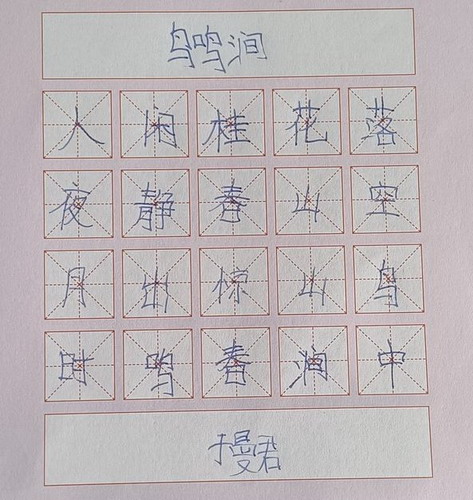 鸟鸣涧
人闲桂花落
夜静春山空
月出惊山鸟
时鸣春涧中
于曼君